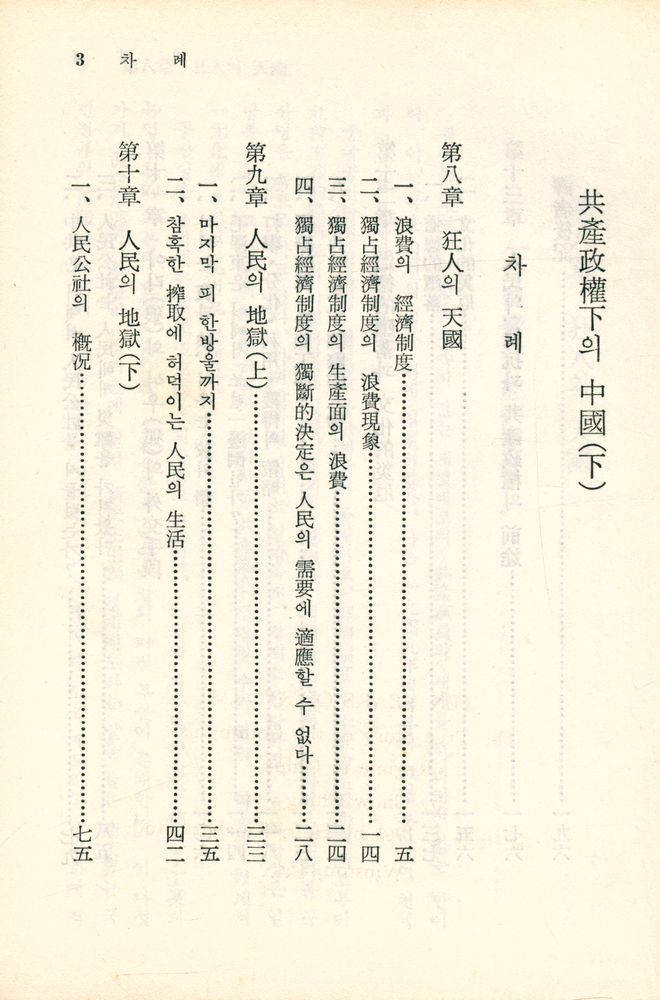 3 차 례
共產政權下의 中國(下)
차 례
第八章 狂人의 天國
一、浪費의 經濟制度………五
二、獨占經濟制度의 浪費現象………一四
三、獨占經濟制度의 生產面의 浪費………二四
四、獨占經濟制度의 獨斷的決定은 人民의 需要에 適應할 수 없다………二八
第九章 人民의 地獄(上)………三三
一、마지막 피 한방울까지………三五
二、참혹한 搾取에 허덕이는 人民의 生活………四二
第十章 人民의 地獄(下)
一、人民公社의 槪況………七五